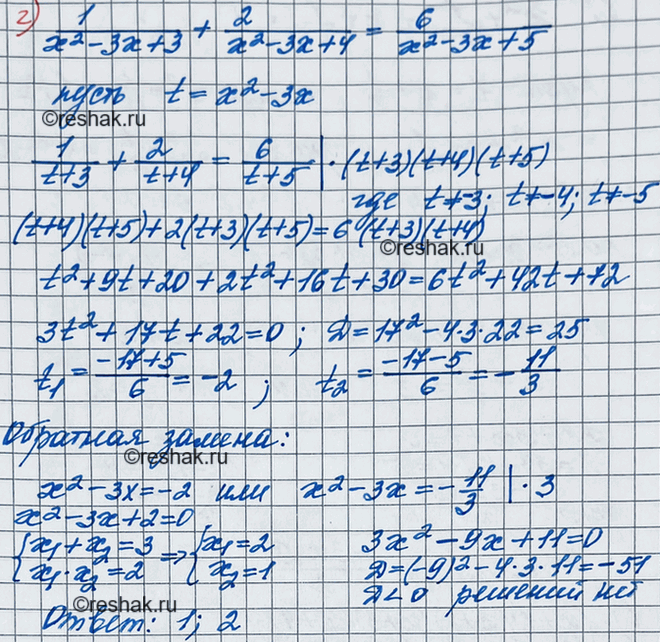 г) 1/(x²-3x+3) + 2/(x²-3x+4) = 6/(x²-3x+5)
пусть t = x²-3x
©reshak.ru
1/(t+3) + 2/(t+4) = 6/(t+5) | ·(t+3)(t+4)(t+5)
где t≠-3; t≠-4; t≠-5
(t+4)(t+5)+2(t+3)(t+5)=6(t+3)(t+4)
©reshak.ru
t²+9t+20+2t²+16t+30=6t²+42t+72
3t²+17t+22=0; D=17²-4·3·22=25
t₁ = (-17+5)/6 = -2; t₂ = (-17-5)/6 = -11/3
Обратная замена:
©reshak.ru
x²-3x=-2 или x²-3x=-11/3 | ·3
x²-3x+2=0
{x₁+x₂=3 ⇒ {x₁=2 3x²-9x+11=0
{x₁·x₂=2 {x₂=1 D=(-9)²-4·3·11=-51
D<0 решений нет
Ответ: 1; 2